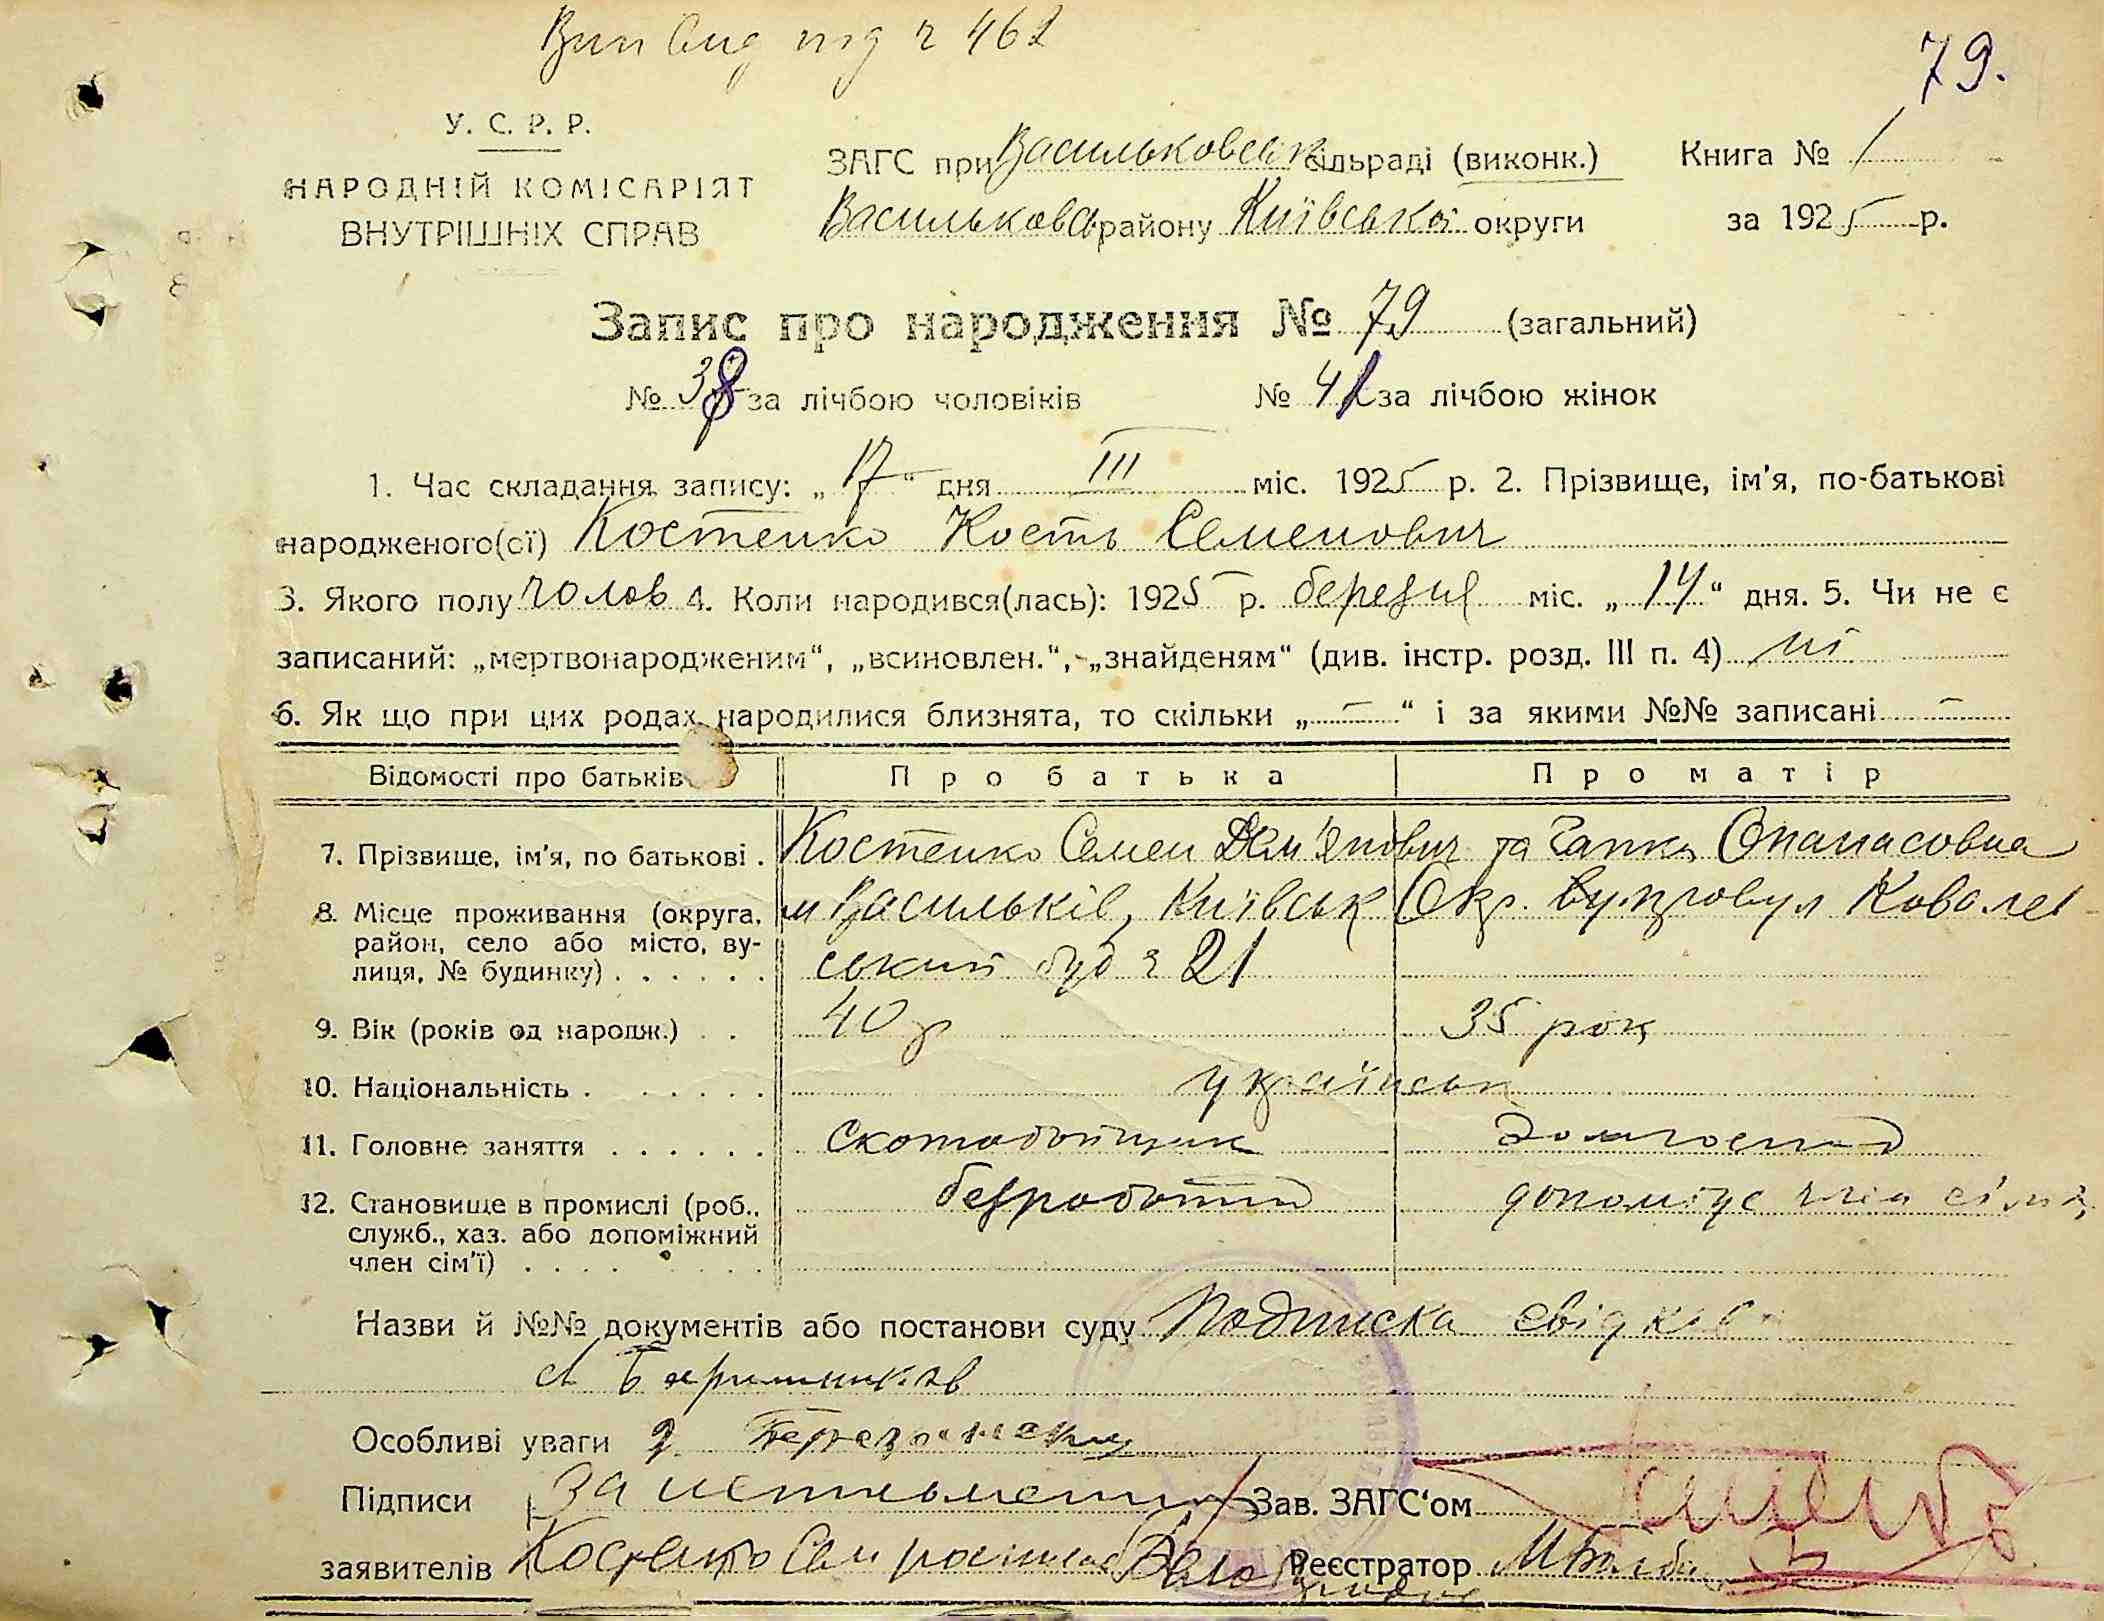 Вип вид под ч 462
79.
У. С. Р. Р.
НАРОДНІЙ КОМІСАРІЯТ
ВНУТРІШНІХ СПРАВ
ЗАГС при Васильковськ сільраді (виконк.) Книга № 1
Васильковсь району Київської округи за 1925 р.
Запис про народження № 79 (загальний)
№ 38 за лічбою чоловіків № 41 за лічбою жінок
1. Час складання запису: „17“ дня III міс. 1925 р. 2. Прізвище, ім'я, по-батькові
народженого(ої) Костенко Кость Семенович
3. Якого полу чолов 4. Коли народився(лась): 1925 р. березня міс. „14“ дня. 5. Чи не є
записаний: „мертвонародженим“, „всиновлен.“, „знайденям“ (див. інстр. розд. III п. 4) ні
6. Як що при цих родах народилися близнята, то скільки „—“ і за якими №№ записані —
Відомості про батьків Про батька Про матір
7. Прізвище, ім'я, по батькові . Костенко Семен Дем'янович та Гапка Опанасовна
8. Місце проживання (округа, м Васильків, Київськ Окр. провул Ковалев
район, село або місто, ву-
лиця, № будинку) . . . . . . ський буд ч 21
9. Вік (років од народж.) . . 40 р 35 рок
10. Національність . . . . . . українськ
11. Головне заняття . . . . . . Скотобойщик Домгоспод
12. Становище в промислі (роб., безробітний допоміжує член сі'мї
служб., хаз. або допоміжний
член сім'ї) . . . . . . .
Назви й №№ документів або постанови суду Подписка свідків
Особливі уваги 2
Підписи За Зав. ЗАГС'ом
заявителів Костенко Сем Реєстратор